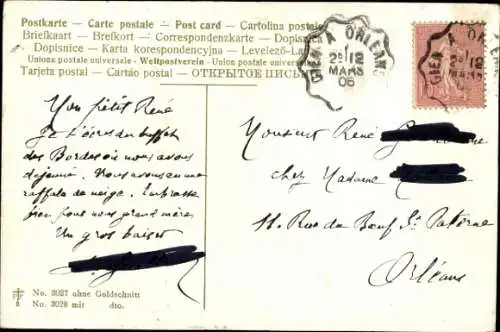 Postkarte - Carte postale - Post card - Cartolina postale
Briefkaart - Brefkort - Correspondenzkarte - Dopisnica
Dopisnice - Karta korespondencyjna - Levelező-La
Unions postale universale - Weltpostverein - Union postale universelle
Tarjeta postal - Cartão postal - ОТКРЫТОЕ ПИСЬМ
GIEN A ORLEANS
2E 12
MARS
06
GIEN A ORLEA
12
MARS
Mon petit René
Je t'écris du buffet
des Bordes où nous avons
déjeuné. Nous avons eu une
raffale de neige. Embrasse
bien pour nous grand mère.
Un gros baiser
Monsieur René
chez Madame
11. Rue du Bœuf St Paterne
Orléans
No. 3027 ohne Goldschnitt
No. 3028 mit dto.